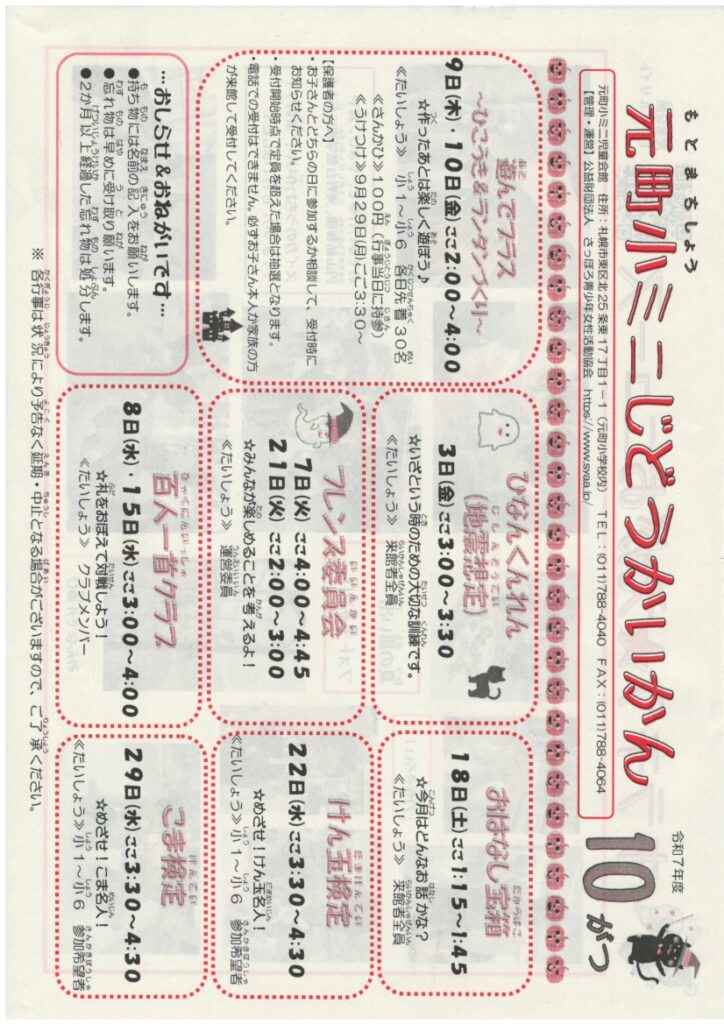 令和7年度
元町小ミニじどうかいかん 10がつ
もとまちしょう
元町小ミニ児童会館 住所：札幌市東区北25条東17丁目1－1（元町小学校内） TEL：(011)788-4040 FAX：(011)788-4064
【管理・運営】公益財団法人 さっぽろ青少年女性活動協会 https://www.syaa.jp/
遊んでプラス
～ひこうき＆ランタンづくり～
9日(木)・10日(金) ここ2:00～4:00
☆作ったあとは楽しく遊ぼう♪
≪たいしょう≫ 小1～小6 各日先着30名
≪さんかひ≫100円（行事当日に持参）
≪うけつけ≫9月29日(月)ここ3:30～
【保護者の方へ】
・お子さんとどちらの日に参加するか相談して、受付時に
お知らせください。
・受付開始時点で定員を超えた場合は抽選となります。
・電話での受付はできません。必ずお子さん本人か家族の方
が来館して受付してください。
…おしらせ＆おねがいです…
●持ち物には名前の記入をお願いします。
●忘れ物は早めに受け取り願います。
●2か月以上経過した忘れ物は処分します。
ひなんくんれん
(地震想定)
3日(金) ここ3:00～3:30
☆いざという時のための大切な訓練です。
≪たいしょう≫ 来館者全員
フレンズ委員会
7日(火) ここ4:00～4:45
21日(火) ここ2:00～3:00
☆みんなが楽しめることを考えるよ！
≪たいしょう≫ 運営委員
百人一首クラブ
8日(水)・15日(水) ここ3:00～4:00
☆札をおぼえて対戦しよう！
≪たいしょう≫ クラブメンバー
おはなし宝箱
18日(土) ここ1:15～1:45
☆今月はどんなお話かな？
≪たいしょう≫ 来館者全員
けん玉検定
22日(水) ここ3:30～4:30
☆めざせ！けん玉名人！
≪たいしょう≫小1～小6 参加希望者
こま検定
29日(水) ここ3:30～4:30
☆めざせ！こま名人！
≪たいしょう≫小1～小6 参加希望者
※ 各行事は状況により予告なく延期・中止となる場合がございますので、ご了承ください。